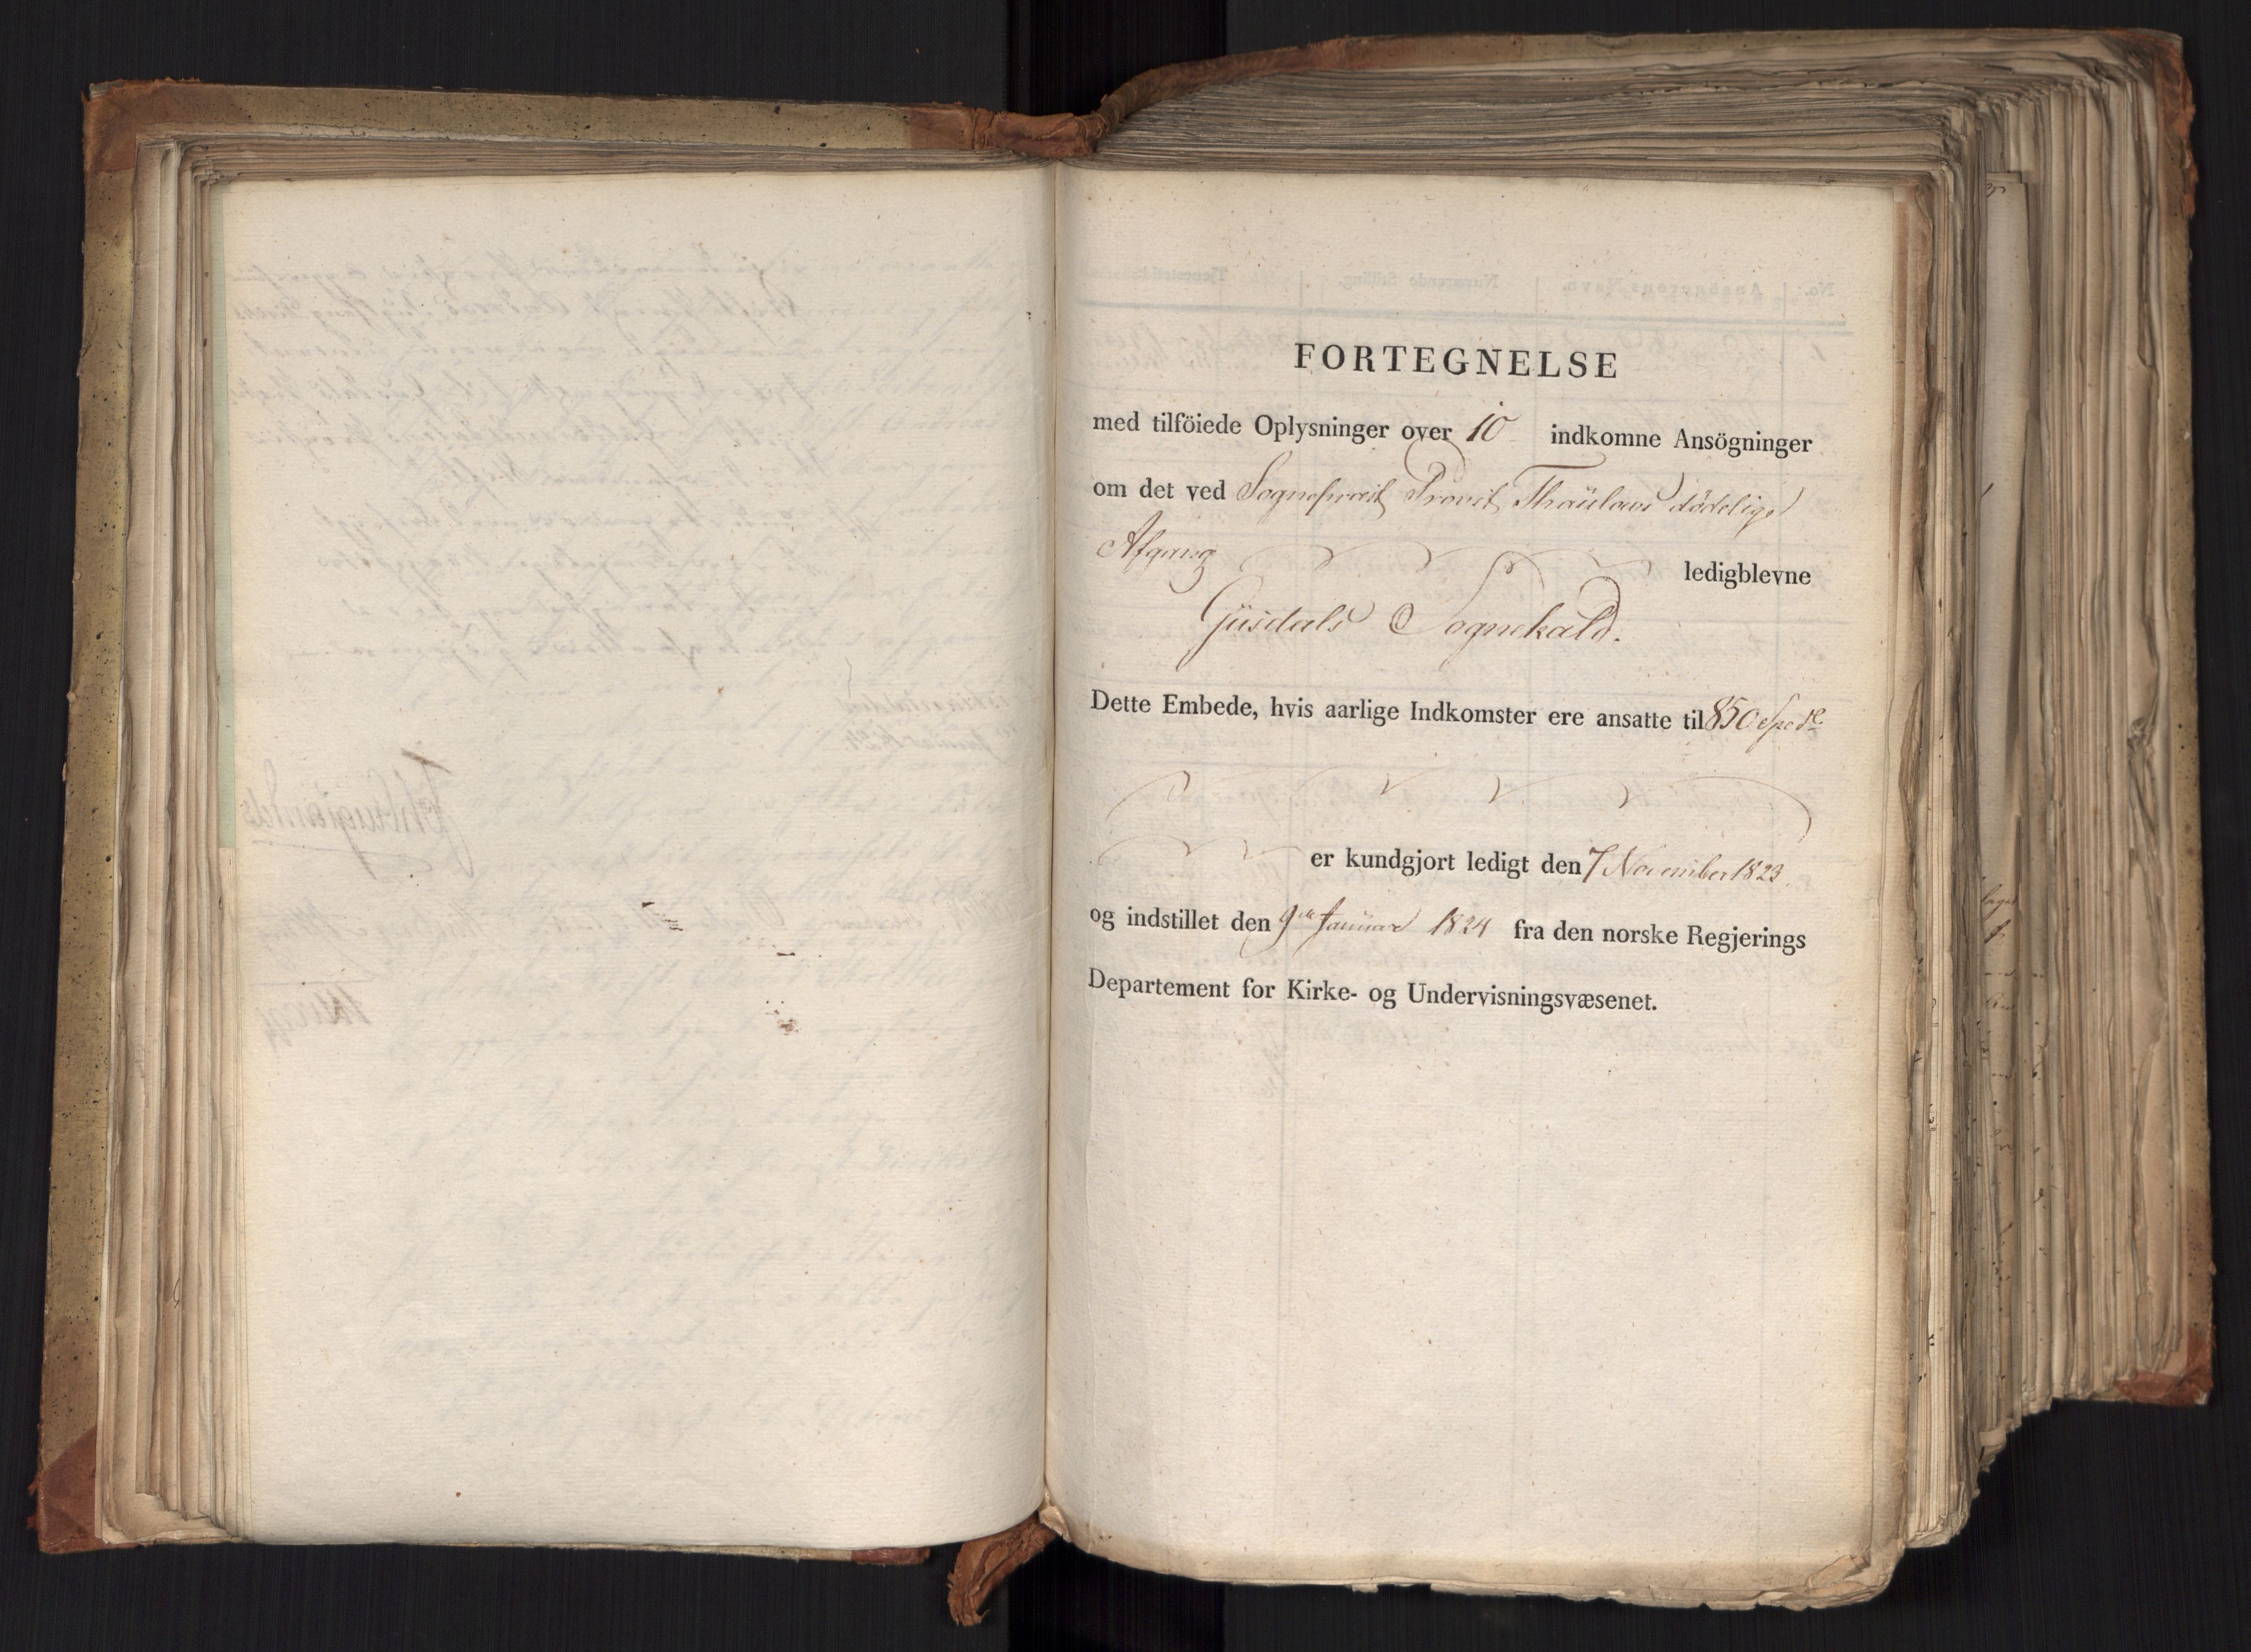 FORTEGNELSE
med tilföiede Oplysninger over 10 indkomne Ansögninger
om det ved Sognepræst Provst Thaulows dödelige
Afgang ledigblevne
Gusdals Sognekald.
Dette Embede, hvis aarlige Indkomster ere ansatte til 850 Spcdlr
er kundgjort ledigt den 7 November 1823.
og indstillet den 9de Januar 1824 fra den norske Regjerings
Departement for Kirke- og Undervisningsvæsenet.